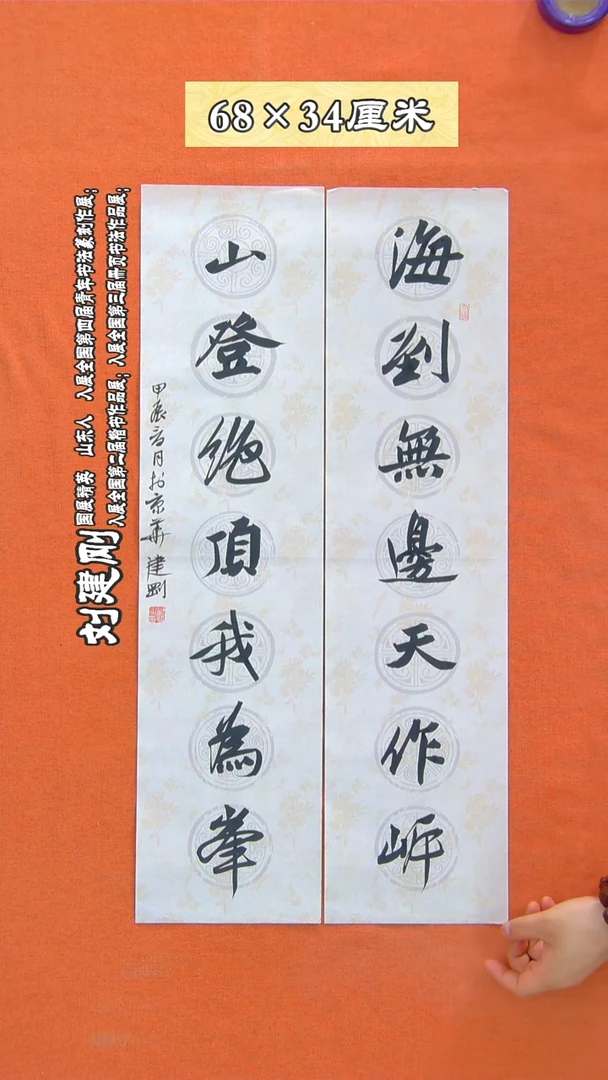 68×34厘米
海到無邊天作岸
山登絶頂我為峯
甲辰
月於京華建剛
刘建刚
国展精英 山东人 入展全国第四届青年书法篆刻作展；
入展全国第二届楷书作品展；入展全国第三届册页书法作品展；